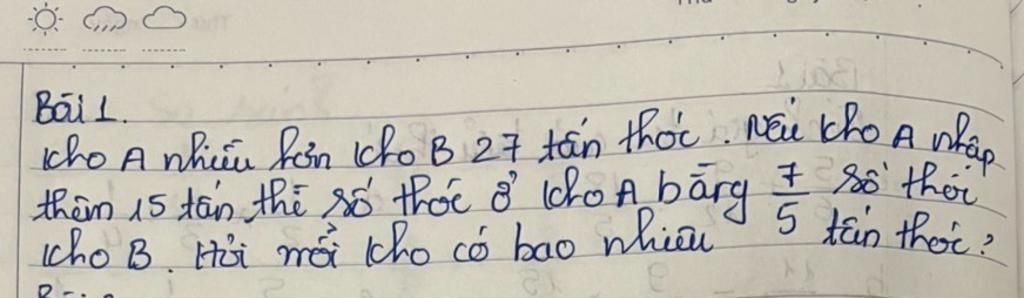 Bài 1.
Kho A nhiều hơn kho B 27 tấn thóc. Nếu kho A nhập
thêm 15 tấn thì số thóc ở kho A bằng 7/5 số thóc
kho B. Hỏi mỗi kho có bao nhiêu tấn thóc?